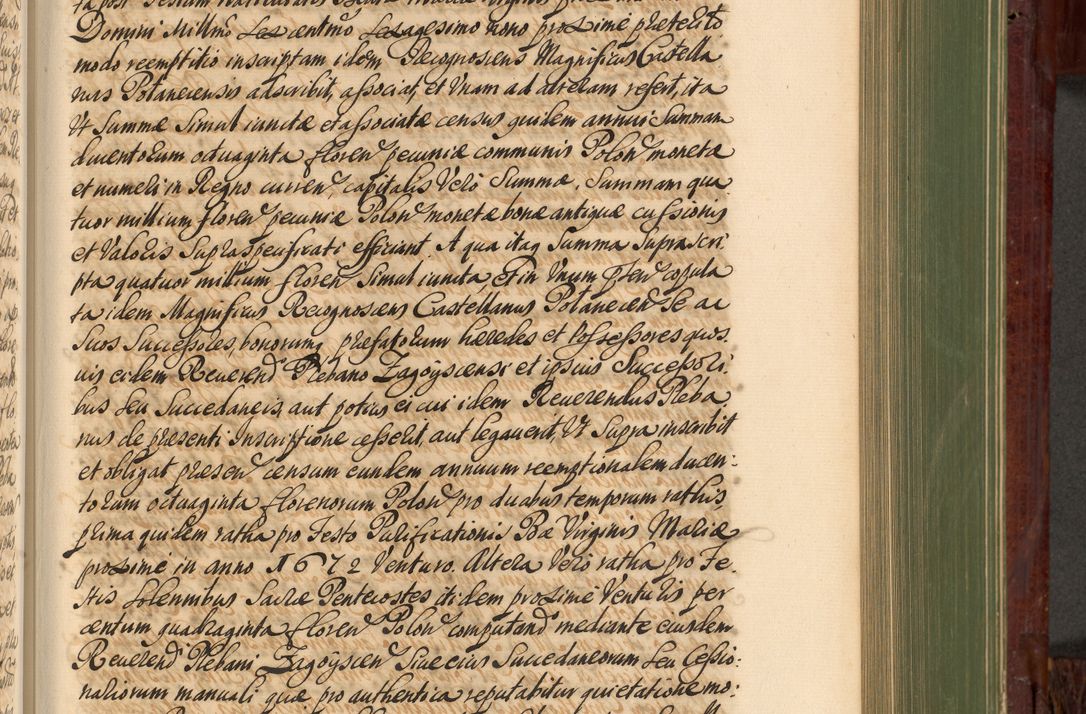 Domini Millmo Sexcentmo Sexagesimo nono proxime præterito
modo reemptitio inscriptam idem Recognoscens Magnificus Castella
nus Polanecensis adscribit, associat, et Unam ad alteram refert, ita
Ut Summæ Simul iunctæ et associatæ census quidem annui Summam
ducentorum octuaginta floren pecuniæ communis Polon monetæ
et numeri in Regno curren, capitalis Verò Summæ, Summam qua
tuor millium floren pecuniæ Polon monetæ bonæ antiquæ cussionis
et Valoris Supraspecificati efficiant. A qua itaq Summa Suprascri
pta quatuor millium floren Simul iuncta, et in Unum copula
ta idem Magnificus Recognoscens Castellanus Polanecen Se ac
Suos Successores, bonorumq præfatorum hæredes et Possessores quos
uis eidem Reuerend Plebano Zagoyscensi et ipsius Successori
bus Seu Succedaneis, aut potius ei cui idem Reuerendus Pleba
nus de præsenti Inscriptione cesserit, aut legauerit, Ut Supra inscribit
et obligat præsen censum eundem annuum reemptionalem ducen:
torum octuaginta florenorum Polon pro duabus temporum rathis,
prima quidem ratha pro Festo Purificationis Bæ Virginis Mariæ
proxime in anno 1672 Venturo. Altera Verò ratha pro Fe
stis Solennibus Sacræ Pentecostes itidem proxime Venturis per
centum quadraginta floren Polon computand mediante eiusdem
Reuerend Plebani Zagoyscen Siue eius Succedaneorum Seu Cessio:
nariorum manuali quæ pro authentica reputabitur quietatione mo: